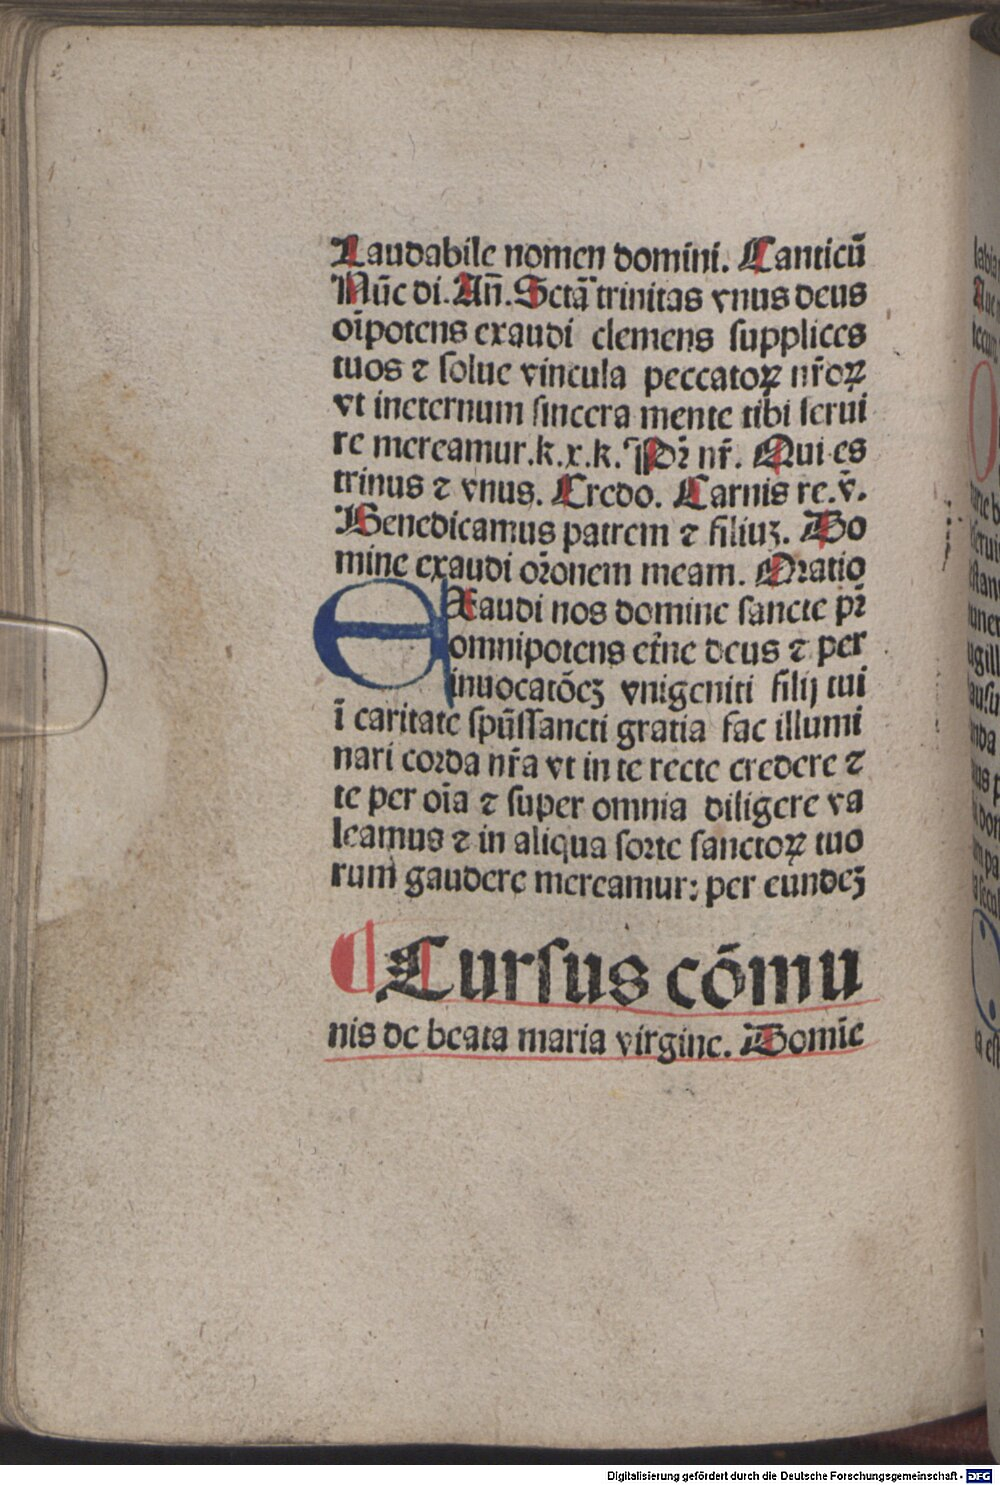 Laudabile nomen domini. Canticū
Nūc di. An̄. Sctā trinitas vnus deus
oīpotens exaudi clemens ſupplices
tuos ⁊ ſolue vincula peccatoꝝ nr̄oꝝ
vt ineternum ſincera mente tibi ſerui
re mereamur. k. x. k. Pr̄ nr̄. Qui es
trinus ⁊ vnus. Credo. Carnis re. v̄.
Benedicamus patrem ⁊ filiuꝫ. Do
mine exaudi or̄onem meam. Oratio
EXaudi nos domine ſancte pr̄
omnipotens etn̄e deus ⁊ per
inuocatōeꝫ vnigeniti filij tui
ī caritate ſpūſſancti gratia fac illumi
nari corda nr̄a vt in te recte credere ⁊
te per oīa ⁊ ſuper omnia diligere va
leamus ⁊ in aliqua ſorte ſanctoꝝ tuo
rum gaudere mereamur: per eundeꝫ
¶ Curſus cōmu
nis de beata maria virgine. Domīe
Digitalisierung gefördert durch die Deutsche Forschungsgemeinschaft - DFG